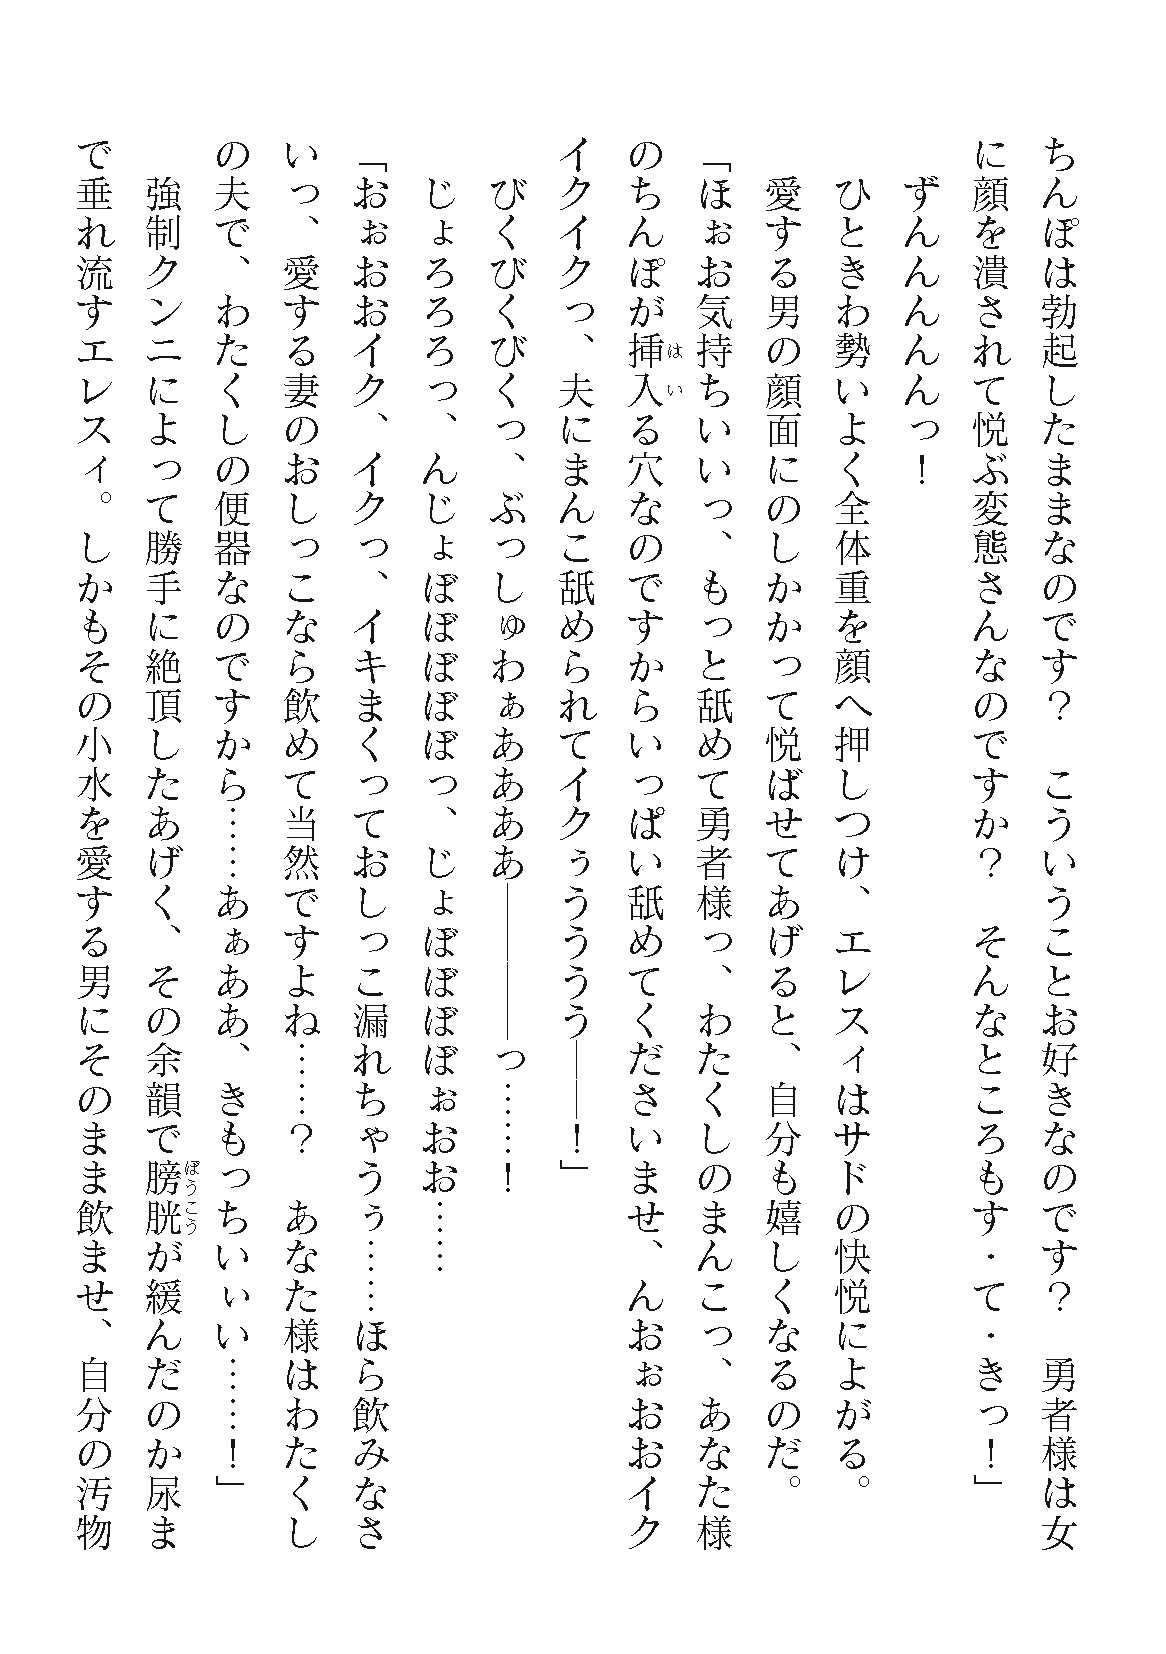 ちんぽは勃起したままなのです？　こういうことお好きなのです？　勇者様は女
に顔を潰されて悦ぶ変態さんなのですか？　そんなところもす・て・きっ！」
　ずんんんんんっ！
　ひときわ勢いよく全体重を顔へ押しつけ、エレスィはサドの快悦によがる。
　愛する男の顔面にのしかかって悦ばせてあげると、自分も嬉しくなるのだ。
「ほぉお気持ちいいっ、もっと舐めて勇者様っ、わたくしのまんこっ、あなた様
のちんぽが挿入る穴なのですからいっぱい舐めてくださいませ、んおぉおおイク
イクイクっ、夫にまんこ舐められてイクぅうううう――！」
　びくびくびくっ、ぶっしゅわぁああああ――――っ……！
　じょろろろっ、んじょぼぼぼぼぼっ、じょぼぼぼぼぉおお……
「おぉおおイク、イクっ、イキまくっておしっこ漏れちゃうぅ……ほら飲みなさ
いっ、愛する妻のおしっこなら飲めて当然ですよね……？　あなた様はわたくし
の夫で、わたくしの便器なのですから……あぁああ、きもっちいぃい……！」
　強制クンニによって勝手に絶頂したあげく、その余韻で膀胱が緩んだのか尿ま
で垂れ流すエレスィ。しかもその小水を愛する男にそのまま飲ませ、自分の汚物